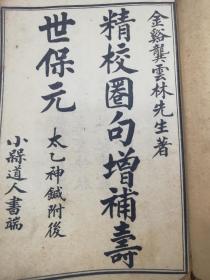 金谿龔雲林先生著
精校圈句增補壽
世保元
太乙神鍼附後
小鞣道人書耑